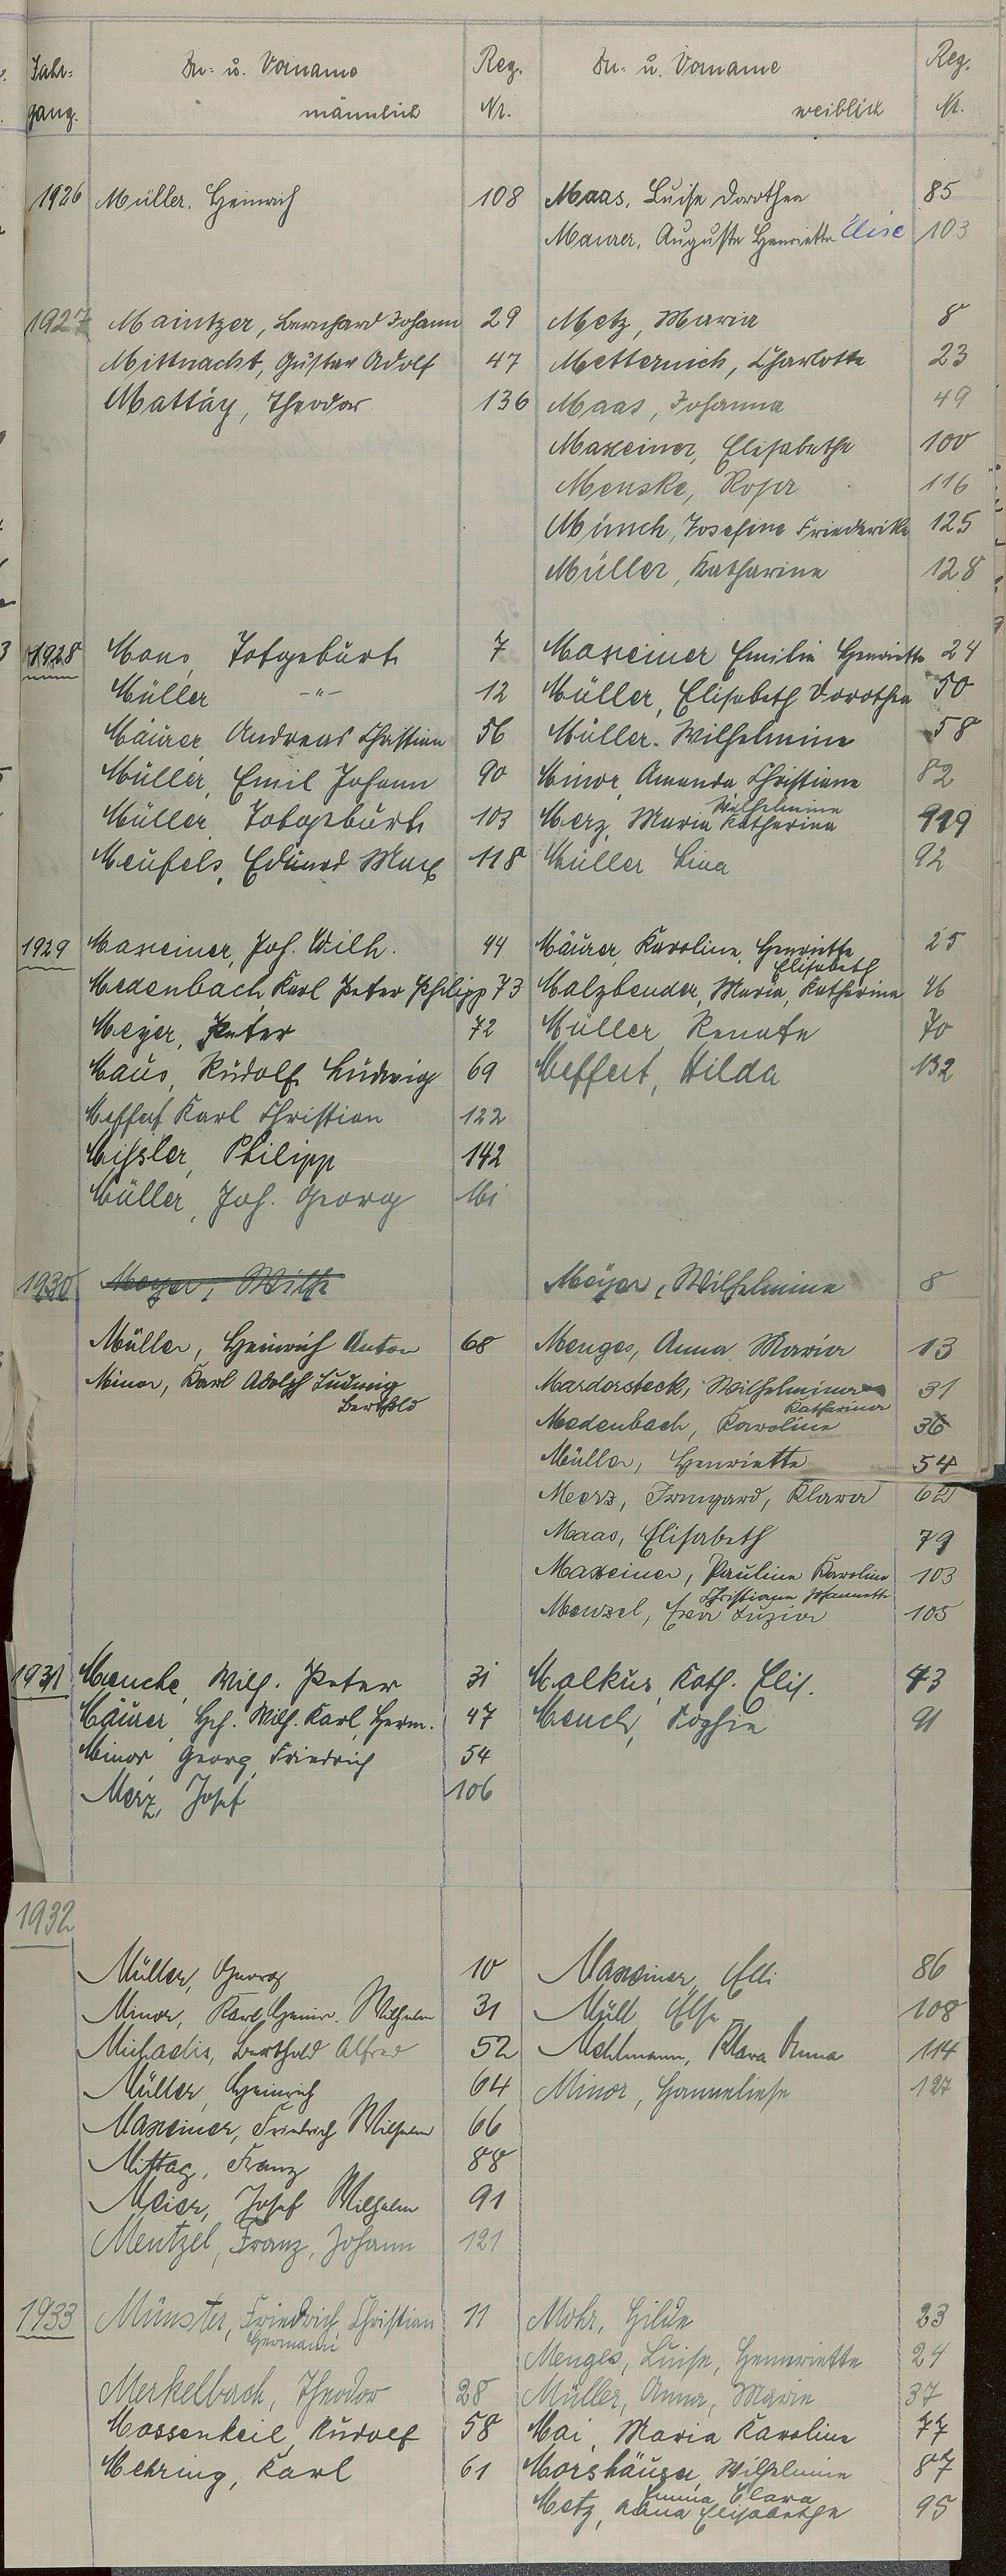 Jahr- Zu- u. Vorname Reg. Zu- u. Vorname Reg.
gang. männlich Nr. weiblich Nr.
1926 Müller, Heinrich 108 Maas, Luise Dorothea 85
Maurer, Auguste Henriette Elise 103
1927 Maintzer, Bernhard Johann 29 Metz, Maria 8
Mittnacht, Gustav Adolf 47 Metternich, Charlotte 23
Mattäy, Theodor 136 Maas, Johanna 49
Maxeiner, Elisabethe 100
Menske, Rosa 116
Münch, Josefine Friederike 125
Müller, Katharine 128
1928 Maus, Totgeburt 7 Maxeiner Emilie Henriette 24
Müller -"- 12 Müller, Elisabeth Dorothea 50
Mäurer, Andreas Christian 56 Müller. Wilhelmine 58
Müller, Emil Johann 90 Minor, Amanda Christiane 82
Wilhelmine
Müller, Totgeburt 103 Merz, Maria Katharina
Meufels, Eduard Max 118 Müller Lina 92
1929 Maxeiner, Joh. Wilh. 44 Mäurer, Karoline, Henriette 25
Elisabeth
Medenbach, Karl Peter Philipp 73 Malzbender, Maria, Katharina 46
Meyer, Peter 72 Müller, Renate 70
Maus, Rudolf Ludwig 69 Meffert, Hilda 132
Meffert Karl Christian 122
Missler, Philipp 142
Müller, Joh. Georg
1930 Meyer, Wilh Meyer, Wilhelmine 8
Müller, Heinrich Anton 68 Menges, Anna Maria 13
Minor, Karl Adolph Ludwig Mardorsteck, Wilhelmine 31
Berthold Katharina
Medenbach, Karoline 36
Müller, Henriette 54
Merz, Irmgard, Klara 62
Maas, Elisabeth 79
Maxeiner, Pauline Karoline 103
Christiane Johannette
Menzel, Eva Luzia 105
1931 Menche, Wilh. Peter 31 Malkus, Kath. Elis. 43
Mäurer, Hch. Wilh. Karl, Herm. 47 Mench, Sophie 91
Minor, Georg Friedrich 54
Merz, Josef 106
1932
Müller, Georg 10 Maxeiner, Elli 86
Minor, Karl, Heinr. Wilhelm 31 Müll, Else 108
Michaelis, Berthold Alfred 52 Mehlmann, Klara Anna 114
Müller, Heinrich 64 Minor, Hanneliese 127
Maxeiner, Friedrich Wilhelm 66
Mittag, Franz 88
Meier, Josef Wilhelm 91
Mentzel, Franz, Johann 121
1933 Münster, Friedrich, Christian 11 Mohr, Hilde 23
Hermann
Menges, Luise, Hennriette 24
Merkelbach, Theodor 28 Müller, Anna, Marie 37
Massenkeil, Rudolf 58 Mai, Maria Karoline 77
Mehring, Karl 61 Morshäuser, Wilhelmine 87
Emma Clara
Metz, Anna Elisabethe 95